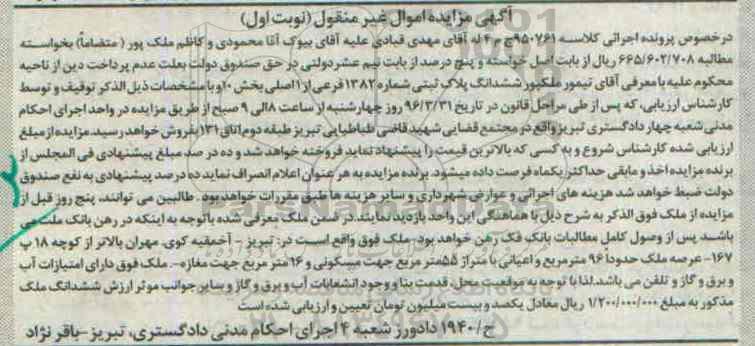 آگهی مزایده اموال غیر منقول (نوبت اول)
درخصوص پرونده اجرائی کلاسه ۹۵۰۷۶۱ج ۴ له آقای مهدی قبادی علیه آقای بیوک آتا محمودی و کاظم ملک پور (متضاما) بخواسته
مطالبه ۶۶۵/۶۰۲/۷۰۸ ریال از بابت اصل خواسته و پنج درصد از بابت نیم عشر دولتی در حق صندوق دولت بعلت عدم پرداخت دین از ناحیه
محکوم علیه با معرفی آقای تیمور ملکپور ششدانگ پلاک ثبتی شماره ۱۳۸۲ فرعی از ۱ اصلی بخش ۱۰ و با مشخصات ذیل الذکر توقیف و توسط
کارشناس ارزیابی، که پس از طی مراحل قانون در تاریخ ۹۶/۳/۳۱ روز چهارشنبه از ساعت ۸ الی ۹ صبح از طریق مزایده در واحد اجرای احکام
مدنی شعبه چهار دادگستری تبریز واقع در مجتمع قضایی شهید قاضی طباطبایی تبریز طبقه دوم اتاق ۱۳۱ بفروش خواهد رسید. مزایده از مبلغ
ارزیابی شده کارشناس شروع و به کسی که بالاترین قیمت را پیشنهاد نماید فروخته خواهد شد و ده در صد مبلغ پیشنهادی فی المجلس از
برنده مزایده اخذ و مابقی حداکثر یکماه فرصت داده میشود. برنده مزایده به هر عنوان اعلام انصراف نماید ده درصد پیشنهادی به نفع صندوق
دولت ضبط خواهد شد هزینه های اجرائی و عوارض شهرداری و سایر هزینه ها طبق مقررات خواهد بود. طالبین می توانند، پنج روز قبل از
مزایده از ملک فوق الذکر به شرح ذیل با هماهنگی این واحد بازدید نمایند. در ضمن ملک معرفی شده باتوجه به اینکه در رهن بانک ملت می
باشد پس از وصول کامل مطالبات بانک فک رهن خواهد بود. ملک فوق واقع است در: تبریز - آخمقیه کوی. مهران بالاتر از کوچه ۱۸ پ
۱۶۷- عرصه ملک حدودا ۹۶ متر مربع و اعیانی با متراز ۵۵متر مربع جهت مسکونی و ۱۶ متر مربع جهت مغازه-. ملک فوق دارای امتیازات آب
و برق و گاز و تلفن می باشد. لذا با توجه به موقعیت محل، قدمت بنا و وجود انشعابات آب و برق و گاز و سایر جوانب موثر ارزش ششدانگ ملک
مذکور به مبلغ ۱/۲۰۰/۰۰۰/۰۰۰ ریال معادل یکصد و بیست میلیون تومان تعیین و ارزیابی شده است
ج/۱۹۴۰ دادورز شعبه ۴ اجرای احکام مدنی دادگستری، تبریز-باقر نژاد